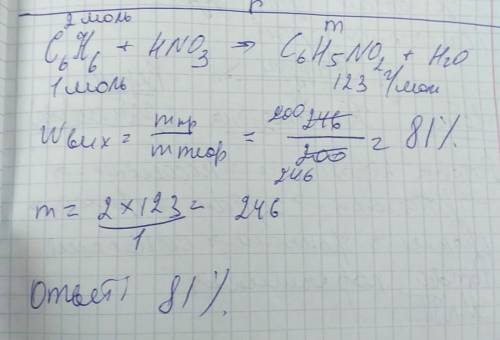 2 моль m
C6H6 + HNO3 ⇒ C6H5NO2 + H2O
1 моль 123 г/мол
Wвих = mпр/mтеор = 200 2̶4̶6̶/2̶0̶0̶ 246 = 81%
m = 2×123/1 = 246
Ответ: 81%.